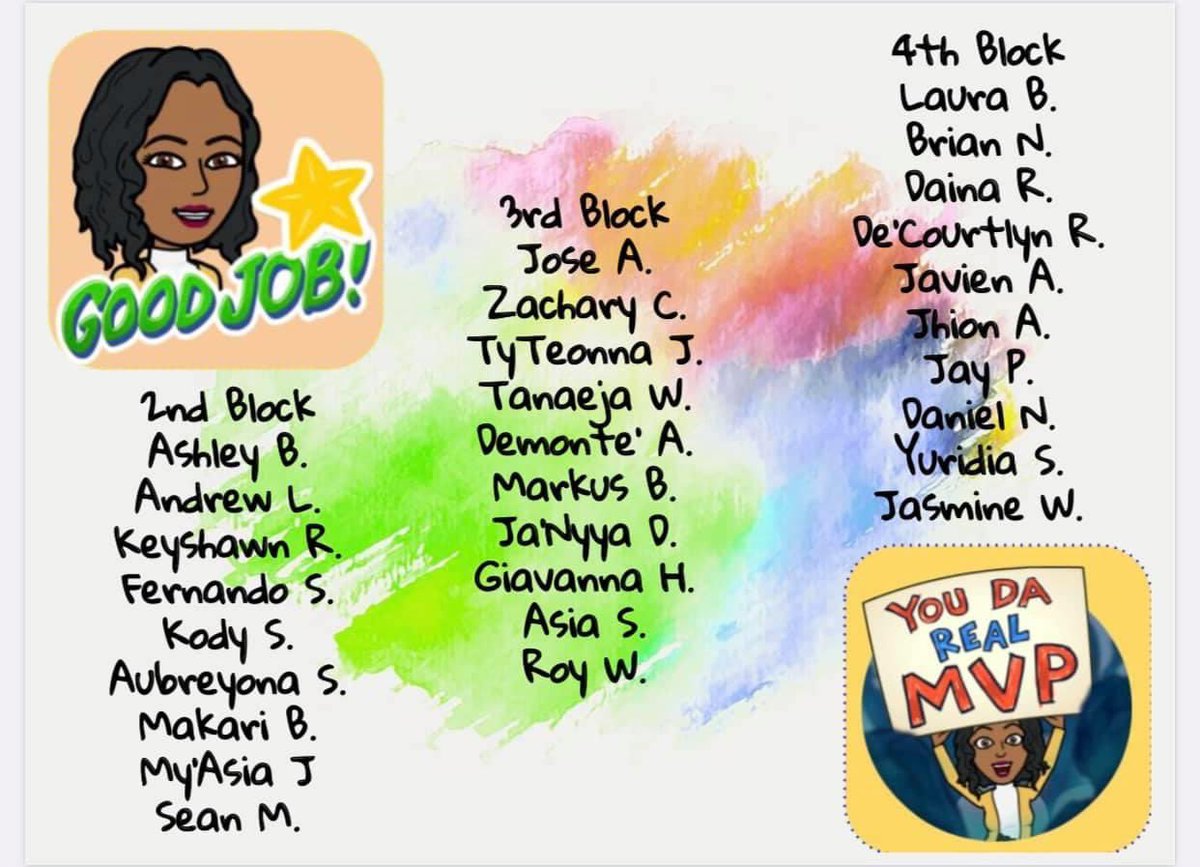 GOOD JOB!
2nd Block
Ashley B.
Andrew L.
Keyshawn R.
Fernando S.
Kody S.
Aubreyona S.
Makari B.
My'Asia J
Sean M.
3rd Block
Jose A.
Zachary C.
TyTeonna J.
Tanaeja W.
Demonte' A.
Markus B.
Ja'Nyya D.
Giavanna H.
Asia S.
Roy W.
4th Block
Laura B.
Brian N.
Daina R.
De'Courtlyn R.
Javien A.
Jhion A.
Jay P.
Daniel N.
Yuridia S.
Jasmine W.
YOU DA
REAL
MVP